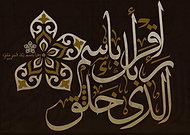 اقرأ باسم
ربك
الذي خلق